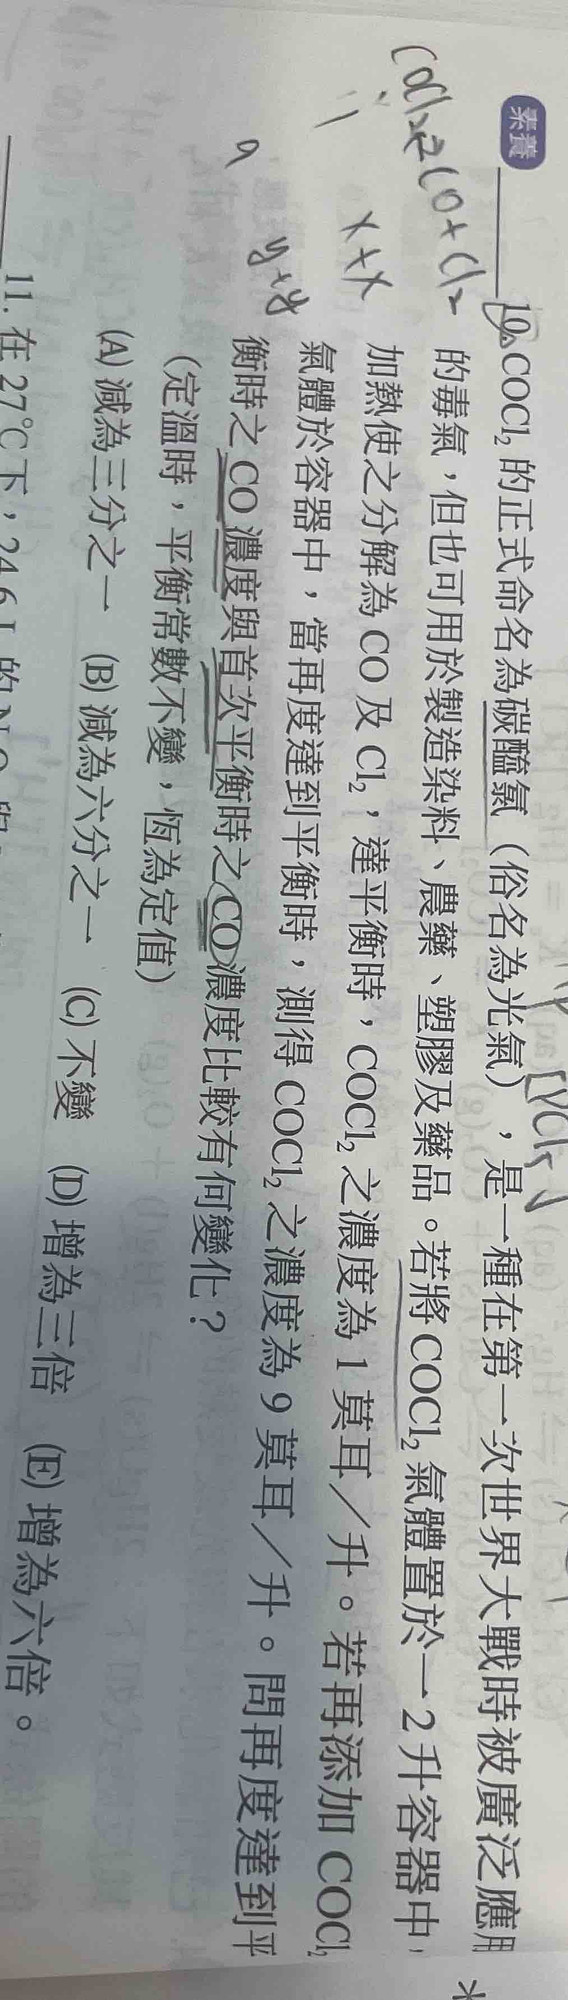 素養
10. COCl₂ 的正式命名為碳醯氯（俗名為光氣），是一種在第一次世界大戰時被廣泛應用
的毒氣，但也可用於製造染料、農藥、塑膠及藥品。若將 COCl₂ 氣體置於一 2 升容器中，
加熱使之分解為 CO 及 Cl₂，達平衡時，COCl₂ 之濃度為 1 莫耳／升。若再添加 COCl₂
氣體於容器中，當再度達到平衡時，測得 COCl₂ 之濃度為 9 莫耳／升。問再度達到平
衡時之 CO 濃度與首次平衡時之 CO 濃度比較有何變化？
（定溫時，平衡常數不變，恆為定值）
(A) 減為三分之一 (B) 減為六分之一 (C) 不變 (D) 增為三倍 (E) 增為六倍。
11. 在 27℃下，24.6 L 的
COCl₂ ⇌ CO + Cl₂
1 x + x
9 y + y